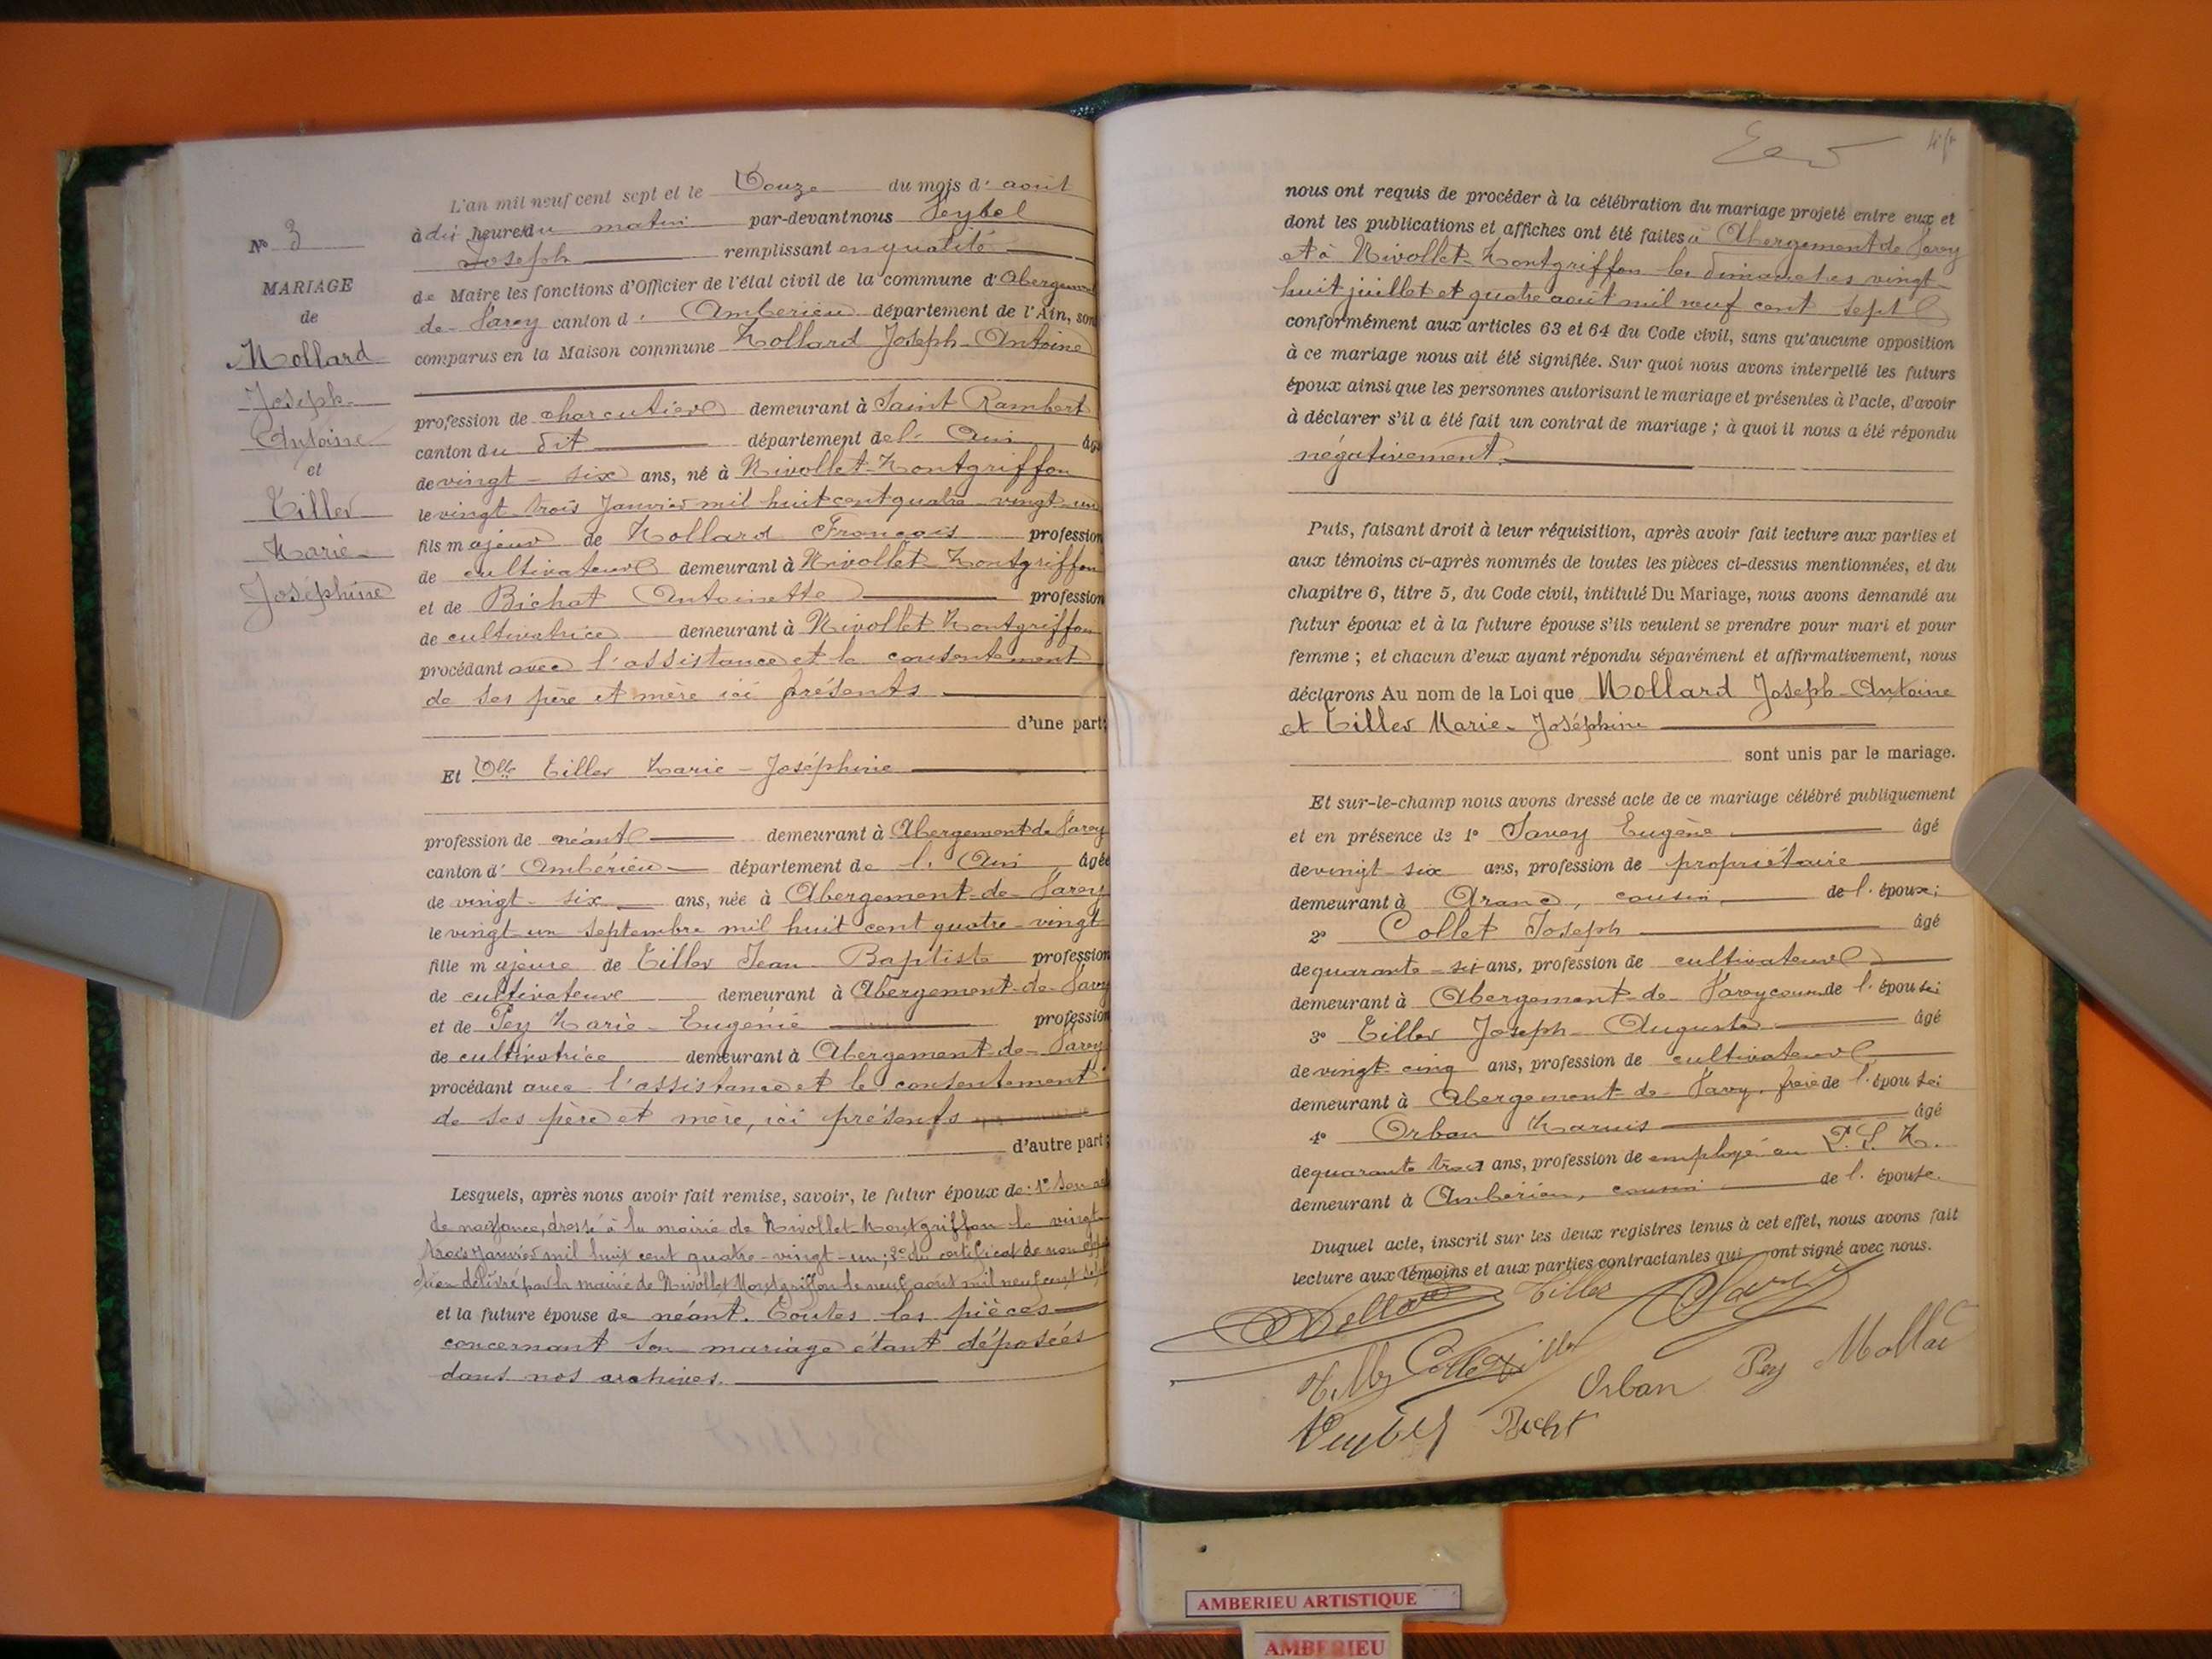 L'an mil neuf cent sept et le Douze du mois d'août
à dix heures du matin par-devant nous Peybel
Joseph remplissant en qualité
de Maire les fonctions d'Officier de l'état civil de la commune d'Abergement
de Varey canton d'Ambérieu département de l'Ain, sont
comparus en la Maison commune Mollard Joseph-Antoine
profession de charcutier demeurant à Saint Rambert
canton du dit département de l'Ain âgé
de vingt-six ans, né à Nivollet-Montgriffon
le vingt-trois Janvier mil huit cent quatre-vingt-un
fils majeur de Mollard François profession
de cultivateur demeurant à Nivollet-Montgriffon
et de Bichat Antoinette profession
de cultivatrice demeurant à Nivollet Montgriffon
procédant avec l'assistance et le consentement
de ses père et mère ici présents
d'une part;
Et Dlle Tiller Marie-Joséphine
profession de néant demeurant à Abergement de Varey
canton d'Ambérieu département de l'Ain âgée
de vingt-six ans, née à Abergement-de-Varey
le vingt-un septembre mil huit cent quatre-vingt
fille majeure de Tiller Jean Baptiste profession
de cultivateur demeurant à Abergement-de-Varey
et de Pey Marie-Eugénie profession
de cultivatrice demeurant à Abergement-de-Varey
procédant avec l'assistance et le consentement
de ses père et mère, ici présents
d'autre part;
Lesquels, après nous avoir fait remise, savoir, le futur époux de: 1° Son
de naissance, dressé à la mairie de Nivollet-Montgriffon le vingt-
trois Janvier mil huit cent quatre-vingt-un; 2° du certificat de non
délivré par la mairie de Nivollet Montgriffon le neuf août mil neuf cent sept
et la future épouse de néant. Toutes les pièces
concernant son mariage étant déposées
dans nos archives.
N° 3
MARIAGE
de
Mollard
Joseph-
Antoine
et
Tiller
Marie-
Joséphine
nous ont requis de procéder à la célébration du mariage projeté entre eux et
dont les publications et affiches ont été faites à Abergement de Varey
et à Nivollet-Montgriffon les dimanches vingt-
huit juillet et quatre août mil neuf cent sept
conformément aux articles 63 et 64 du Code civil, sans qu'aucune opposition
à ce mariage nous ait été signifiée. Sur quoi nous avons interpellé les futurs
époux ainsi que les personnes autorisant le mariage et présentes à l'acte, d'avoir
à déclarer s'il a été fait un contrat de mariage; à quoi il nous a été répondu
négativement.
Puis, faisant droit à leur réquisition, après avoir fait lecture aux parties et
aux témoins ci-après nommés de toutes les pièces ci-dessus mentionnées, et du
chapitre 6, titre 5, du Code civil, intitulé Du Mariage, nous avons demandé au
futur époux et à la future épouse s'ils veulent se prendre pour mari et pour
femme; et chacun d'eux ayant répondu séparément et affirmativement, nous
déclarons Au nom de la Loi que Mollard Joseph-Antoine
et Tiller Marie-Joséphine
sont unis par le mariage.
Et sur-le-champ nous avons dressé acte de ce mariage célébré publiquement
et en présence de 1° Savey Eugène âgé
de vingt-six ans, profession de propriétaire
demeurant à Aranc, cousin de l'époux;
2° Collet Joseph âgé
de quarante-six ans, profession de cultivateur
demeurant à Abergement-de-Varey cousin de l'épouse;
3° Tiller Joseph-Auguste âgé
de vingt-cinq ans, profession de cultivateur
demeurant à Abergement-de-Varey, frère de l'épouse;
4° Orban Marius âgé
de quarante trois ans, profession de employé au P.L.M.
demeurant à Ambérieu, cousin de l'épouse.
Duquel acte, inscrit sur les deux registres tenus à cet effet, nous avons fait
lecture aux témoins et aux parties contractantes qui ont signé avec nous.
Mollard Tiller Savey
Tiller Collet Tiller Orban Pey Mollard
Bichat
AMBERIEU ARTISTIQUE
AMBERIEU